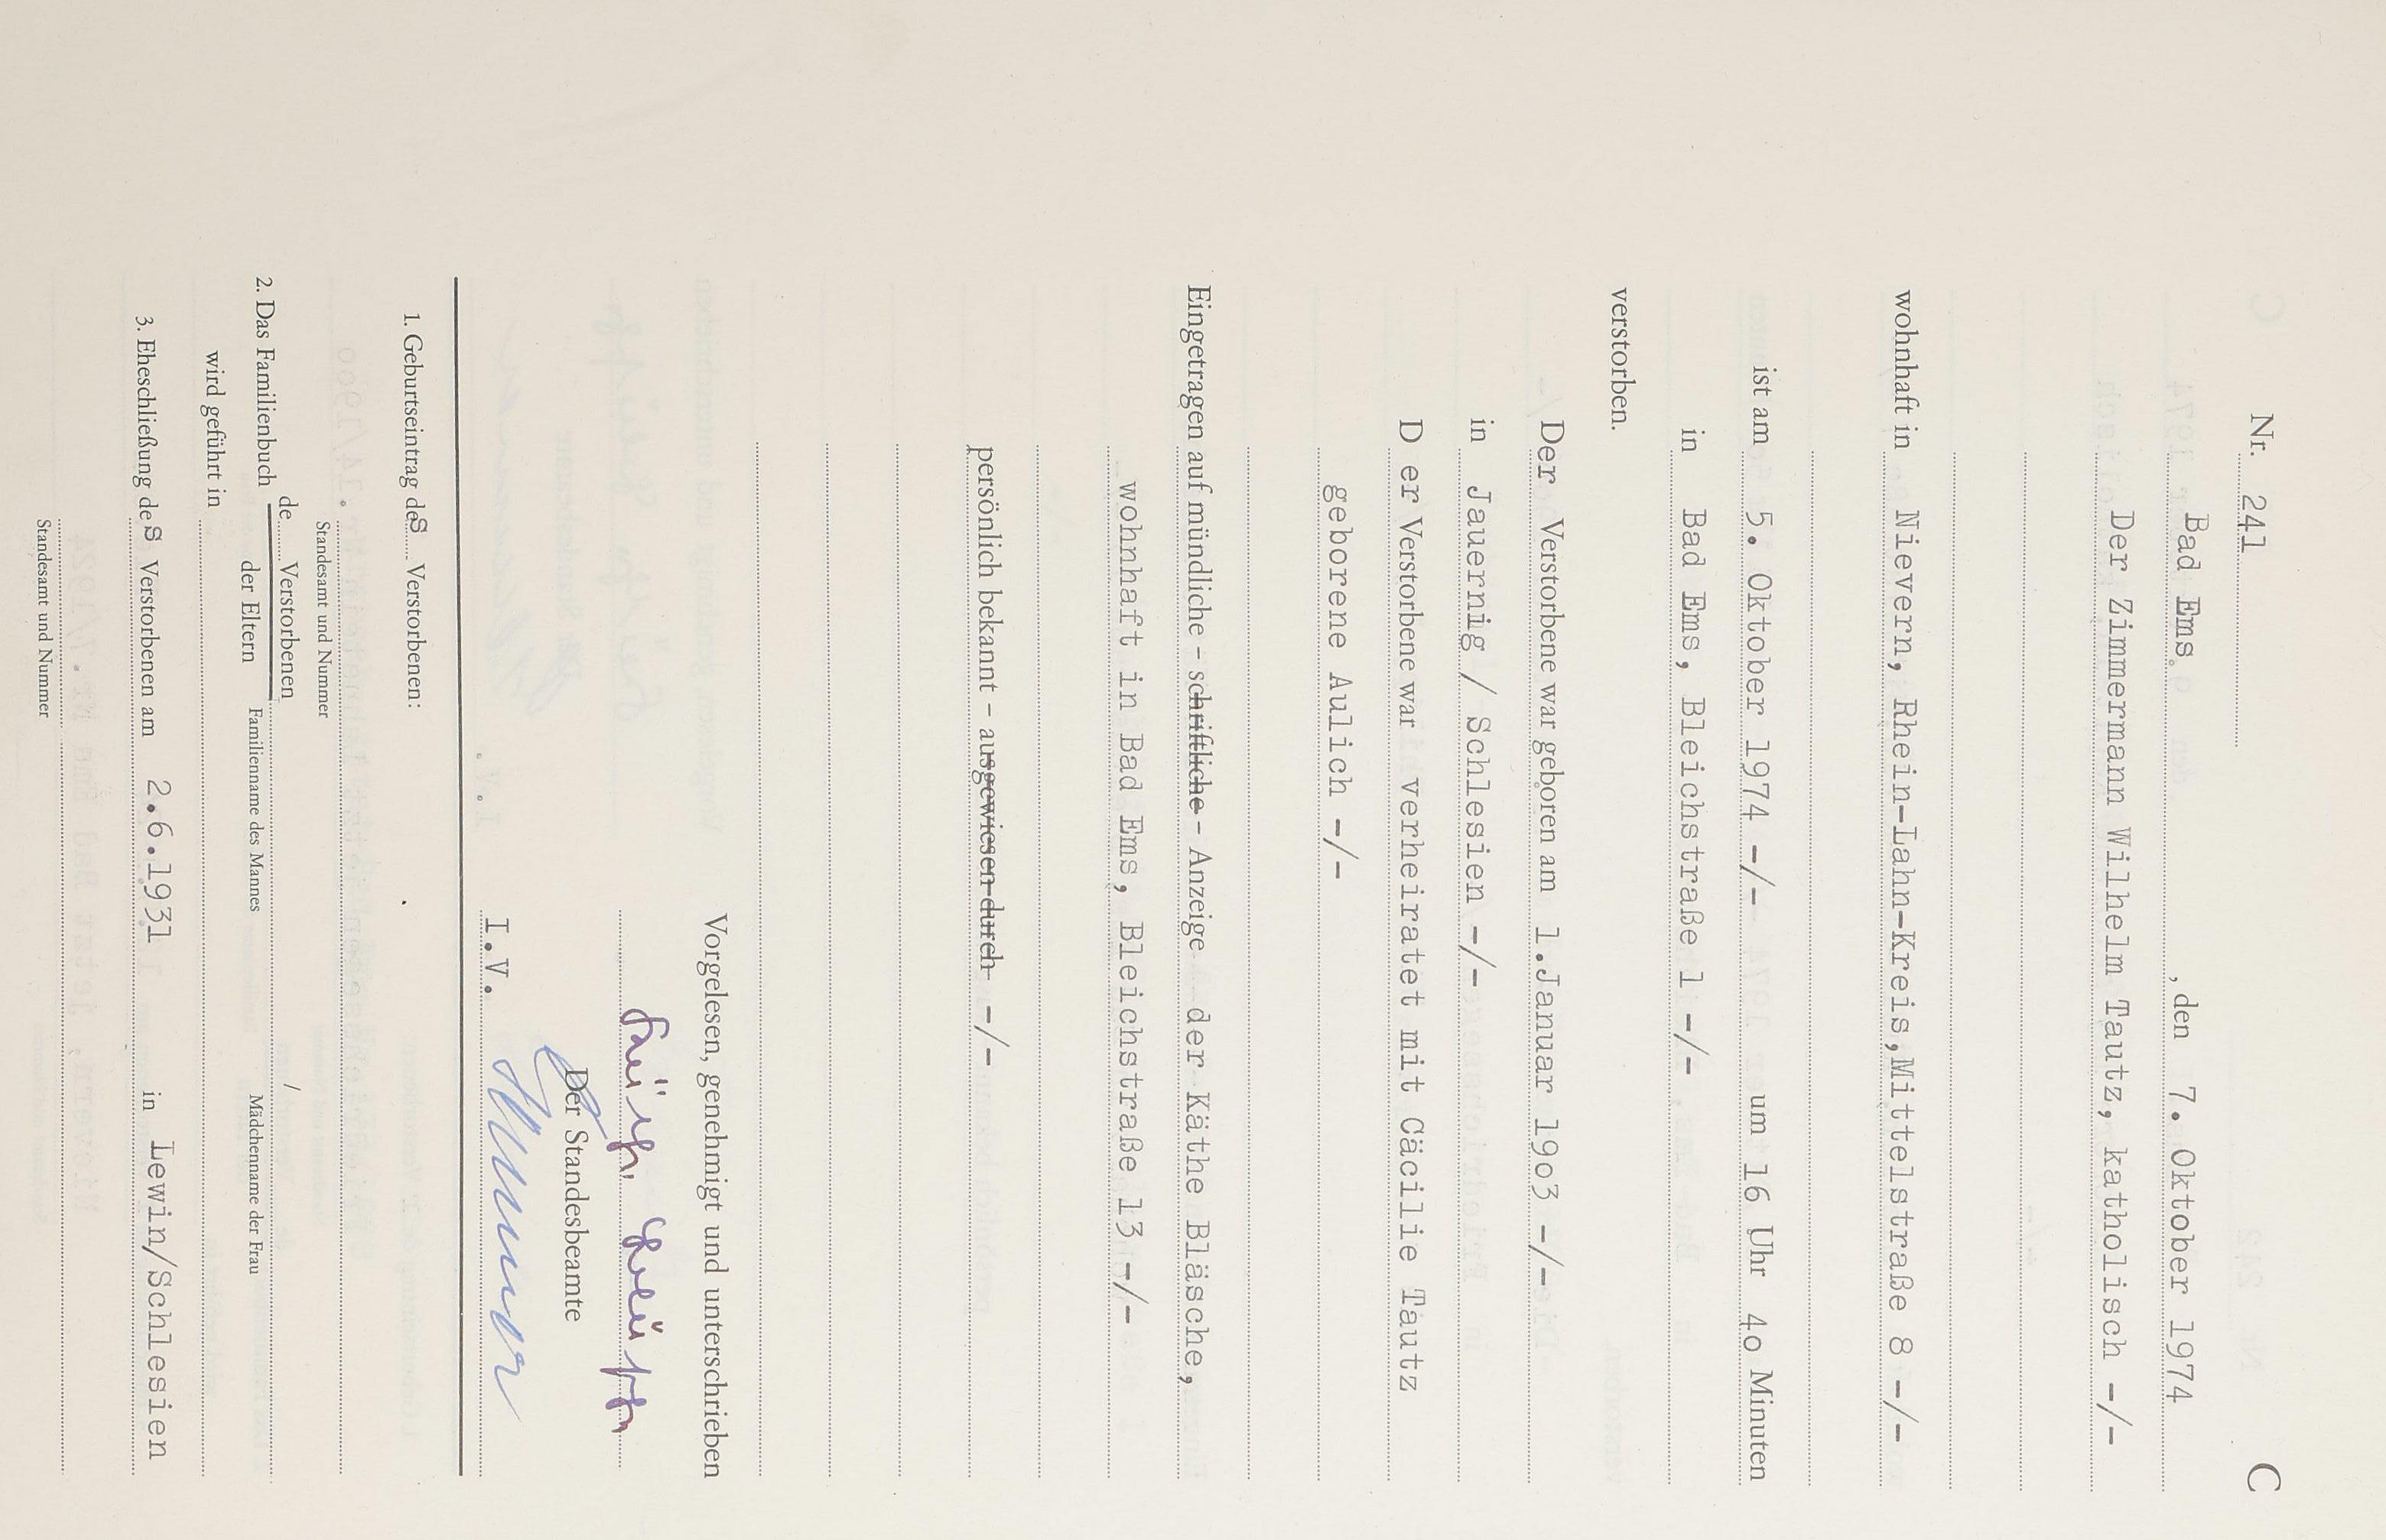 C
Nr. 241
Bad Ems, den 7. Oktober 1974
Der Zimmermann Wilhelm Tautz, katholisch -/-
wohnhaft in Nievern, Rhein-Lahn-Kreis,Mittelstraße 8 -/-
ist am 5. Oktober 1974 -/- um 16 Uhr 4o Minuten
in Bad Ems, Bleichstraße 1 -/-
verstorben.
Der Verstorbene war geboren am 1.Januar 19o3 -/-
in Jauernig / Schlesien -/-
D er Verstorbene war verheiratet mit Cäcilie Tautz
geborene Aulich -/-
Eingetragen auf mündliche - schriftliche - Anzeige der Käthe Bläsche,
wohnhaft in Bad Ems, Bleichstraße 13 -/-
persönlich bekannt - ausgewiesen durch -/-
Vorgelesen, genehmigt und unterschrieben
Der Standesbeamte
I.V.
1. Geburtseintrag des Verstorbenen:
Standesamt und Nummer
2. Das Familienbuch de Verstorbenen /
der Eltern Familienname des Mannes Mädchenname der Frau
wird geführt in
3. Eheschließung des Verstorbenen am 2.6.1931 in Lewin/Schlesien
Standesamt und Nummer